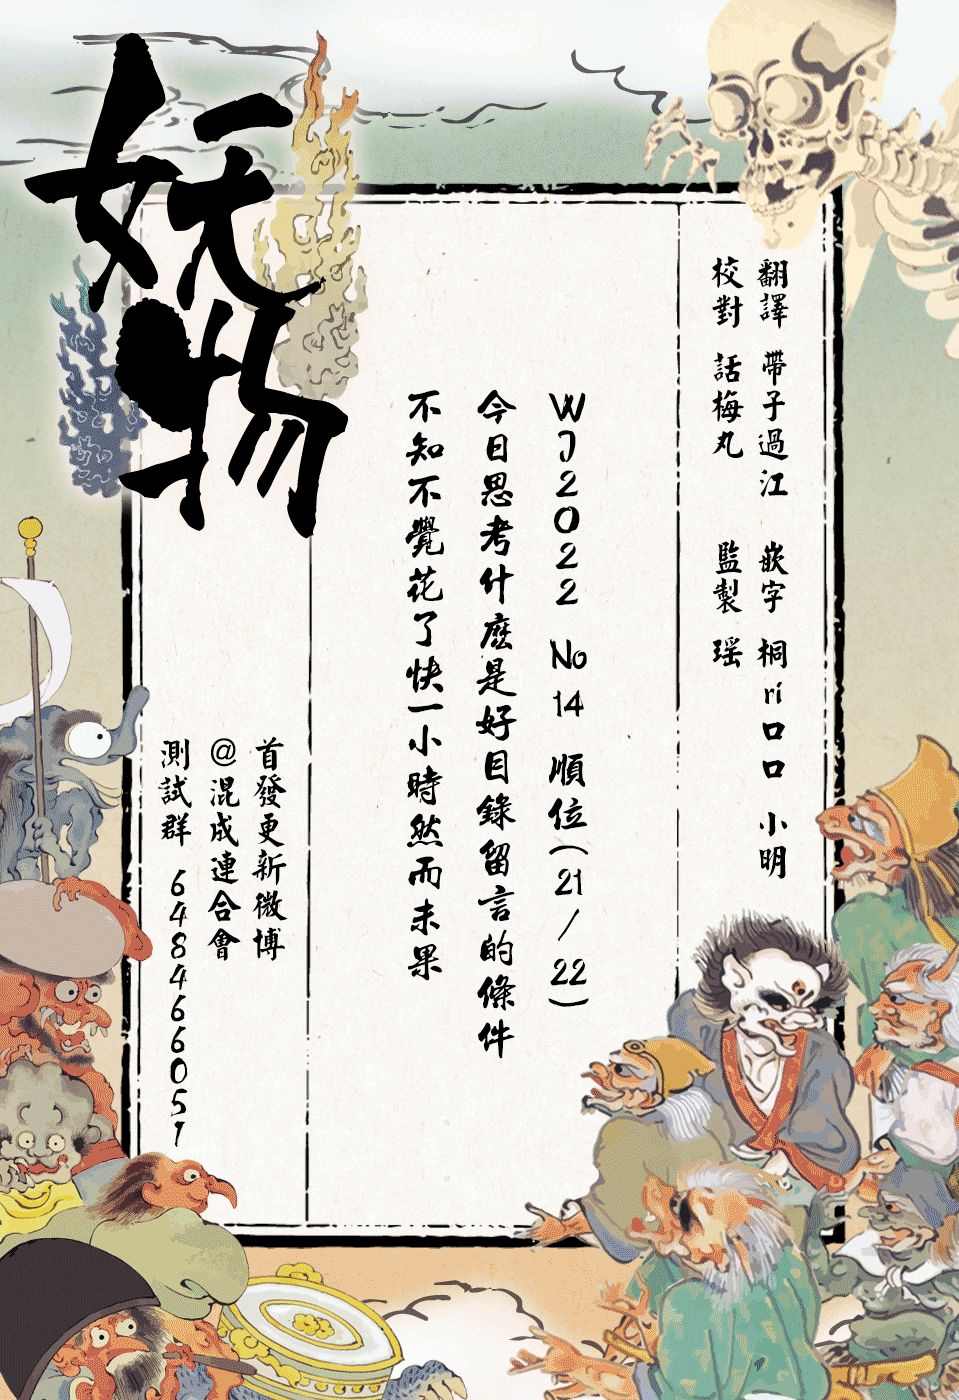 妖物
翻譯 帶子過江 嵌字 桐ri口口 小明
校對 話梅丸 監製 瑶
WJ2022 No14 順位(21/22)
今日思考什麽是好目錄留言的條件
不知不覺花了快一小時然而未果
首發更新微博
@混成連合會
測試群 648466051